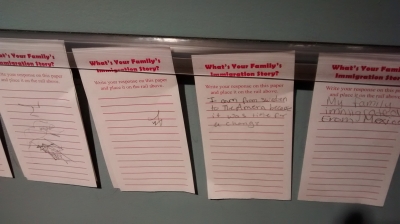 What's Your Family's
Immigration Story?
Write your response on this paper
and place it on the rail above.
What's Your Family's
Immigration Story?
Write your response on this paper
and place it on the rail above.
What's Your Family's
Immigration Story?
Write your response on this paper
and place it on the rail above.
to
it was time for
a change
What's Your Family's
Immigration Story?
Write your response on this paper
and place it on the rail above.
My family
from Mexico